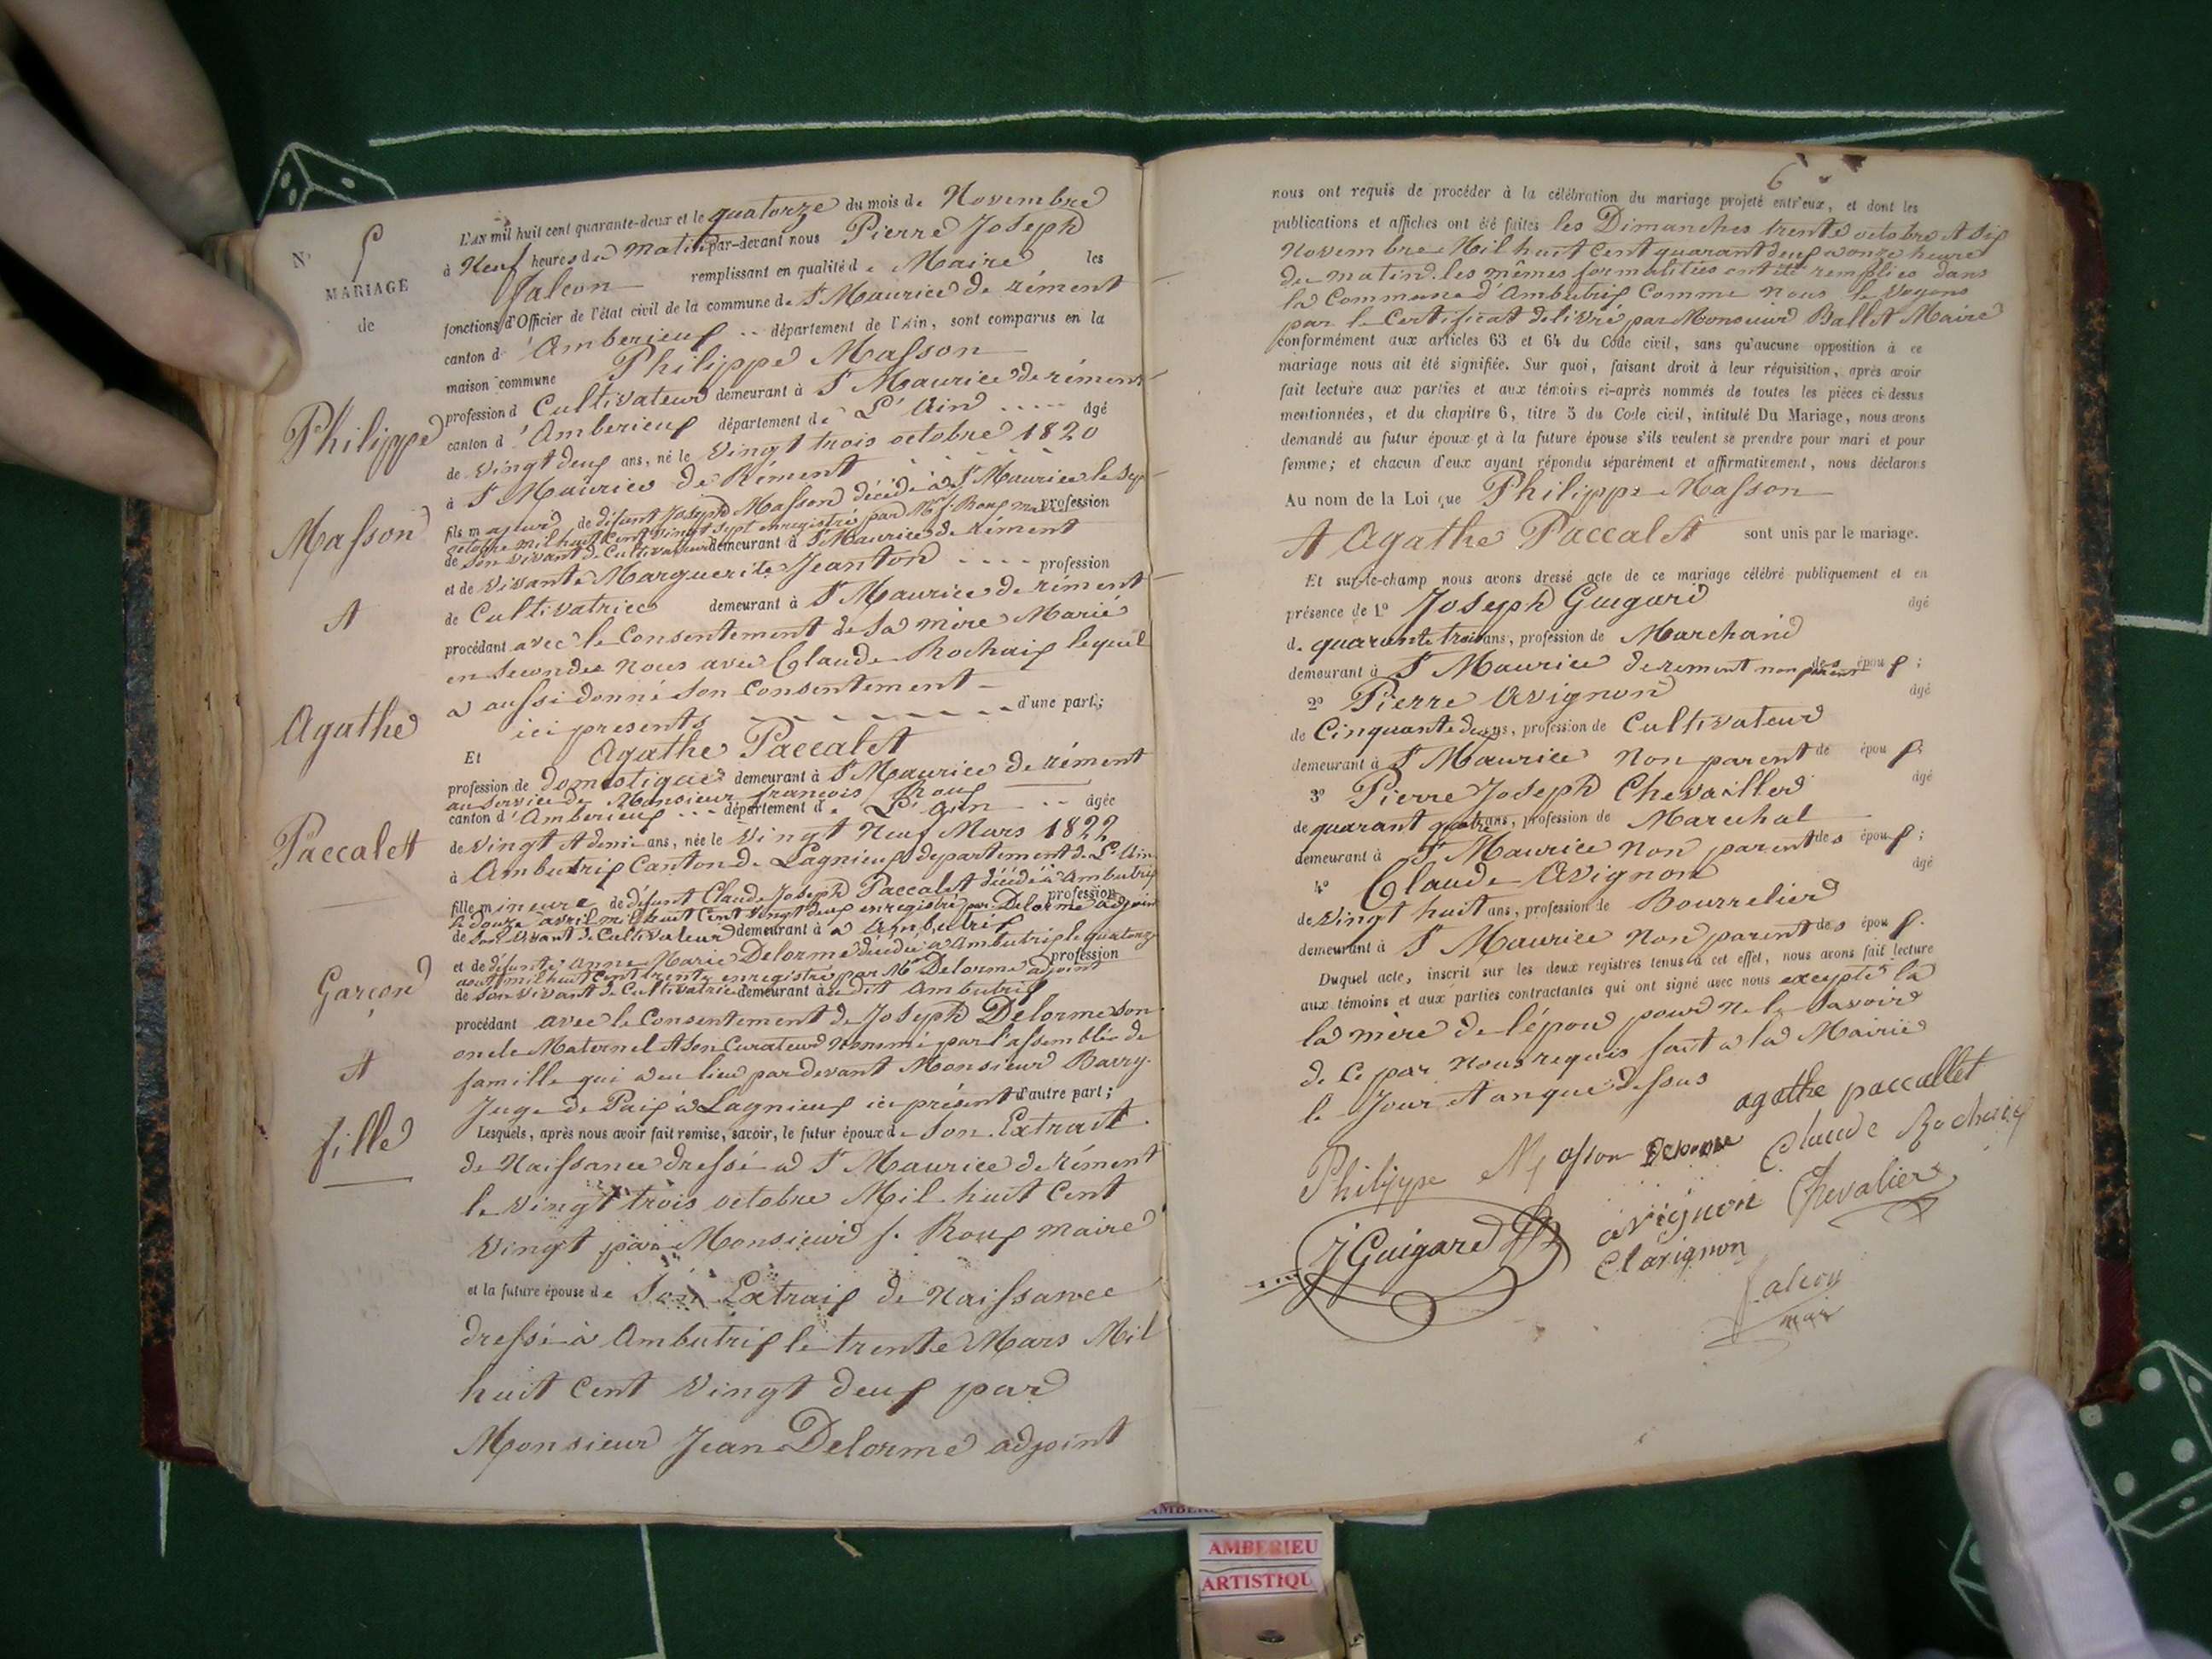 N° 5
MARIAGE
de
Philippe
Masson
et
Agathe
Paccalet
Garçon
et
fille
L'an mil huit cent quarante-deux et le quatorze du mois de Novembre
à Neuf heures du matin par-devant nous Pierre Joseph
Falcon remplissant en qualité de Maire les
fonctions d'Officier de l'état civil de la commune de St Maurice de rément
canton d'Amberieux département de l'Ain, sont comparus en la
maison commune Philippe Masson
profession d Cultivateur demeurant à St Maurice de rément
canton d'Amberieux département de L'Ain âgé
de vingt deux ans, né le vingt trois octobre 1820
à St Maurice de Rément
fils majeur de défunt Joseph Masson décédé à St Maurice le sept
octobre mil huit cent vingt sept enregistré par Mr f. Roux maire profession
de son vivant de Cultivateur demeurant à St Maurice de Rément
et de vivante Marguerite Jeanton profession
de Cultivatrice demeurant à St Maurice de rément
procédant avec le Consentement de sa mère Marié
en secondes nous avec Claude Rochaix lequel
a aussi donné son consentement
ici presents d'une part;
Et Agathe Paccalet
profession de domestique demeurant à St Maurice de rément
au service de Monsieur françois Roux
canton d'Amberieux département de L'Ain âgée
de vingt et demi ans, née le vingt Neuf Mars 1822
à Ambutrix Canton de Lagnieux département de L'Ain
fille mineure de défunt Claude Joseph Paccalet décédé à Ambutrix
le douze avril mil huit cent vingt deux enregistré par Delorme adjoint profession
de son vivant de Cultivateur demeurant à a Ambutrix
et de défunte Anne Marie Delorme décédée à Ambutrix le quatorze
aout mil huit cent trente enregistré par Mr Delorme adjoint profession
de son vivant de Cultivatrice demeurant à dit Ambutrix
procédant avec le Consentement de Joseph Delorme son
oncle Maternel et son Curateur nommé par l'assemblée de
famille qui a eu lieu par devant Monsieur Barry
Juge de Paix à Lagnieux ici présent d'autre part;
Lesquels, après nous avoir fait remise, savoir, le futur époux de son Extrait
de Naissance dressé a St Maurice de Rément
le vingt trois octobre Mil huit Cent
vingt par Monsieur f. Roux maire
et la future épouse de son Extraix de Naissance
dressé à Ambutrix le trente Mars Mil
huit cent vingt deux par
Monsieur Jean Delorme adjoint
6
nous ont requis de procéder à la célébration du mariage projeté entr'eux, et dont les
publications et affiches ont été faites les Dimanches trente octobre et six
Novembre Mil huit Cent quarant deux a onze heure
du matin. les mêmes formalitées ont été remplies dans
la Commune d'Ambutrix Comme nous le voyons
par le Certificat delivré par Monsieur Ballet Maire
conformément aux articles 63 et 64 du Code civil, sans qu'aucune opposition à ce
mariage nous ait été signifiée. Sur quoi, faisant droit à leur réquisition, après avoir
fait lecture aux parties et aux témoins ci-après nommés de toutes les pièces ci-dessus
mentionnées, et du chapitre 6, titre 5 du Code civil, intitulé Du Mariage, nous avons
demandé au futur époux et à la future épouse s'ils veulent se prendre pour mari et pour
femme; et chacun d'eux ayant répondu séparément et affirmativement, nous déclarons
Au nom de la Loi que Philippe Masson
et Agathe Paccalet sont unis par le mariage.
Et sur-le-champ nous avons dressé acte de ce mariage célébré publiquement et en
présence de 1° Joseph Guigard âgé
de quarante trois ans, profession de Marchand
demeurant à St Maurice de rement non parent des époux;
2° Pierre Avignon âgé
de Cinquante deux ans, profession de Cultivateur
demeurant à St Maurice Non parent de époux;
3° Pierre Joseph Chevallier âgé
de quarant quatre ans, profession de Marechal
demeurant à St Maurice non parent des époux;
4° Claude Avignon âgé
de vingt huit ans, profession de Bourrelier
demeurant à St Maurice Non parent des époux.
Duquel acte, inscrit sur les deux registres tenus à cet effet, nous avons fait lecture
aux témoins et aux parties contractantes qui ont signé avec nous excepté la
la mère de l'époux pour ne le savoir
de ce par nous requis fait a la Mairie
le Jour et an que dessus agathe paccallet
Philippe Masson Delorme Claude Rochaix
J Guigard avignon Chevalier
Cl avignon
Falcon
mair
AMBERIEU
ARTISTIQU